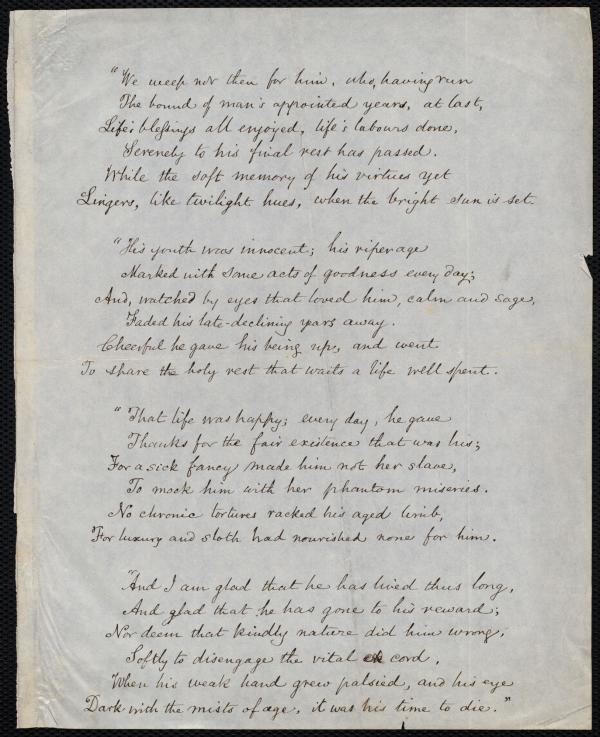 "We weep not then for him, who, having run
The bound of man's appointed years, at last,
Life's blessings all enjoyed, life's labours done,
Serenely to his final rest has passed.
While the soft memory of his virtues yet
Lingers, like twilight hues, when the bright sun is set.
"His youth was innocent; his riper age
Marked with some acts of goodness every day;
And, watched by eyes that loved him, calm and sage,
Faded his late-declining years away.
Cheerful he gave his being up, and went
To share the holy rest that waits a life well spent.
"That life was happy; every day, he gave
Thanks for the fair existence that was his;
For a sick fancy made him not her slave,
To mock him with her phantom miseries.
No chronic tortures racked his aged limb,
For luxury and sloth had nourished none for him.
"And I am glad that he has lived thus long,
And glad that he has gone to his reward;
Nor deem that kindly nature did him wrong,
Softly to disengage the vital cord,
When his weak hand grew palsied, and his eye
Dark with the mists of age, it was his time to die."